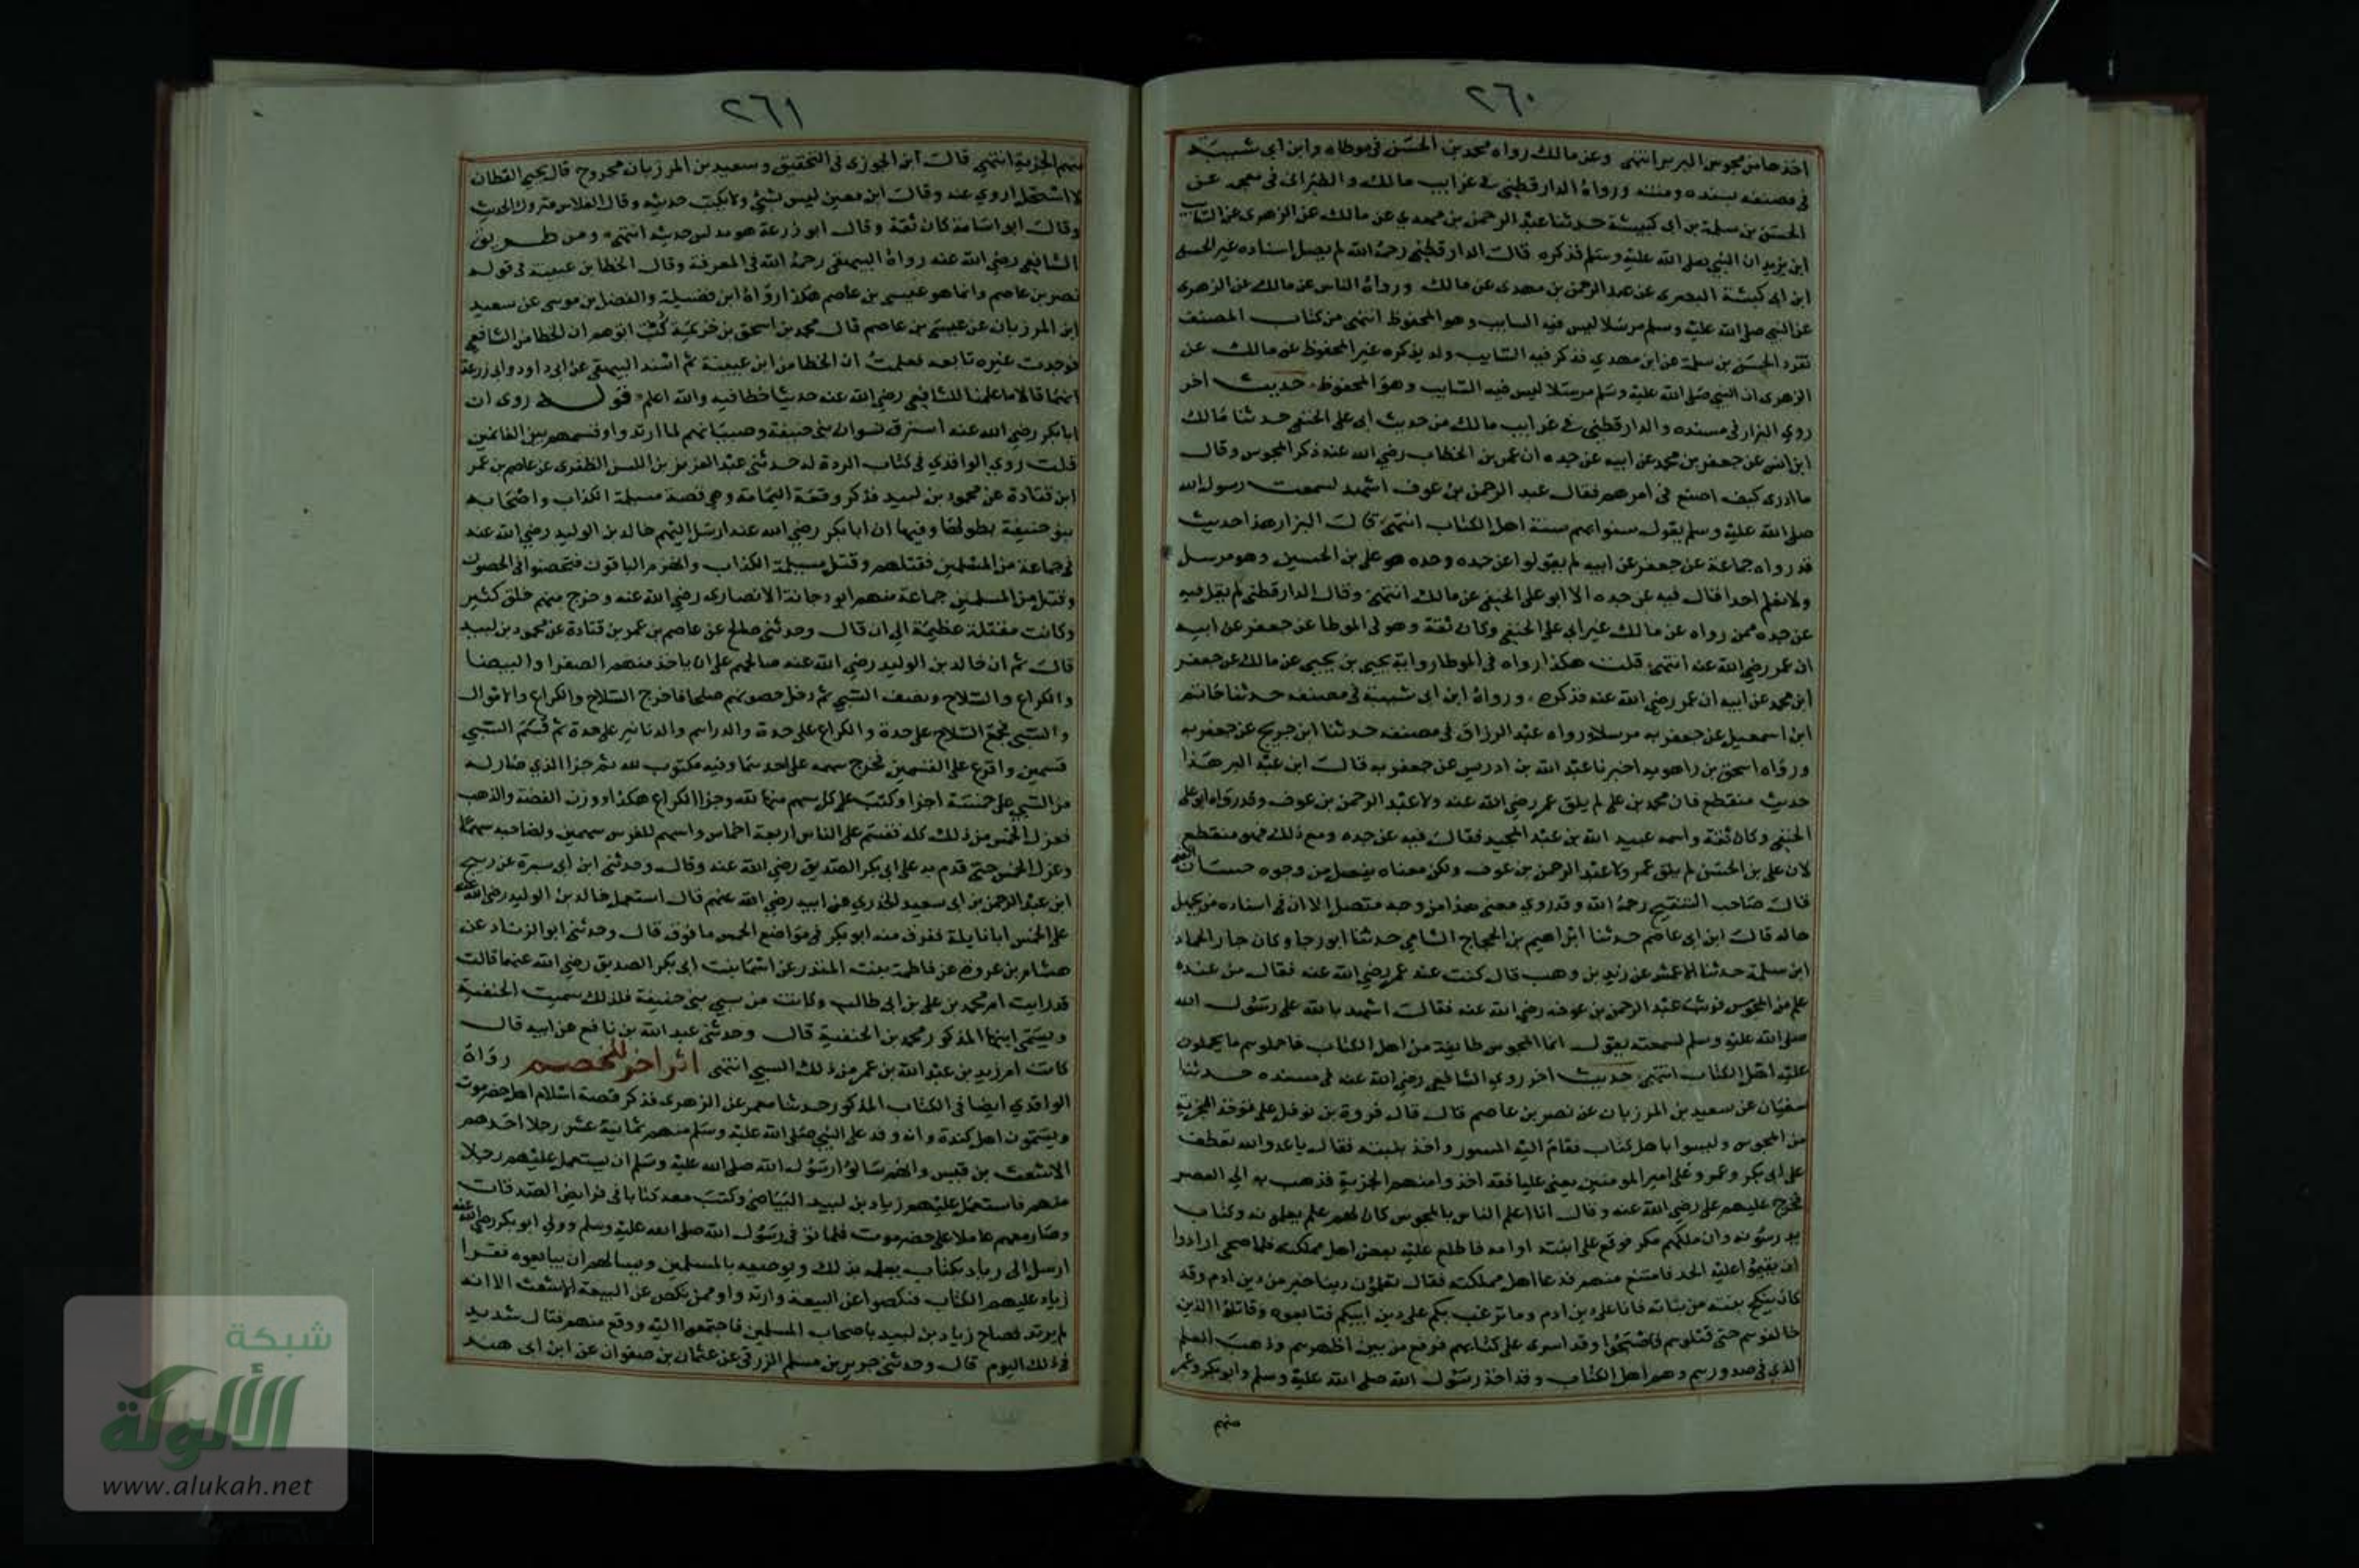 ٢٦٠
اخذها من مجوس البربر انتهى وعن مالك رواه محمد بن الحسن في موطاه وابن ابي شيبة
في مصنفه بسنده ومتنه ورواه الدارقطني في غرايب مالك والطبراني في معجمه عن
الحسن بن سلمة بن ابي كبشة حدثنا عبد الرحمن بن مهدي عن مالك عن الزهري عن السايب
ابن يزيد ان النبي صلى الله عليه وسلم فذكره قال الدارقطني رحمه الله لم يصل اسناده غير الحسن
ابن ابي كبشة البصري عن عبد الرحمن بن مهدي عن مالك ورواه الناس عن مالك عن الزهري
عن النبي صلى الله عليه وسلم مرسلا ليس فيه السايب وهو المحفوظ انتهى من كتاب المصنف
تفرد الحسن بن سلمة عن ابن مهدي فذكر فيه السايب ولم يذكره غير المحفوظ عن مالك عن
الزهري ان النبي صلى الله عليه وسلم مرسلا ليس فيه السايب وهو المحفوظ حديث اخر
روي البزار في مسنده والدارقطني في غرايب مالك من حديث ابي علي الحنفي حدثنا مالك
ابن انس عن جعفر بن محمد عن ابيه عن جده ان عمر بن الخطاب رضي الله عنه ذكر المجوس وقال
ما ادري كيف اصنع في امرهم فقال عبد الرحمن بن عوف اشهد لسمعت رسول الله
صلى الله عليه وسلم يقول سنوا بهم سنة اهل الكتاب انتهى قال البزار هذا حديث
قد رواه جماعة عن جعفر عن ابيه لم يقولوا عن جده وجده هو علي بن الحسين وهو مرسل
ولا نعلم احدا قال فيه عن جده الا ابو علي الحنفي عن مالك انتهى وقال الدارقطني لم يقل فيه
عن جده ممن رواه عن مالك غير ابي علي الحنفي وكان ثقة وهو في الموطا عن جعفر عن ابيه
ان عمر رضي الله عنه انتهى قلت هكذا رواه في الموطا رواية يحيى بن يحيى عن مالك عن جعفر
ابن محمد عن ابيه ان عمر رضي الله عنه فذكره ورواه ابن ابي شيبة في مصنفه حدثنا حاتم
ابن اسمعيل عن جعفر به مرسلا ورواه عبد الرزاق في مصنفه حدثنا ابن جريج عن جعفر به
ورواه اسحق بن راهويه اخبرنا عبد الله بن ادريس عن جعفر به قال ابن عبد البر هذا
حديث منقطع فان محمد بن علي لم يلق عمر رضي الله عنه ولا عبد الرحمن بن عوف وقد رواه ابو علي
الحنفي وكان ثقة واسمه عبيد الله بن عبد المجيد فقال فيه عن جده ومع ذلك فهو منقطع
لان علي بن الحسين لم يلق عمر ولا عبد الرحمن بن عوف ولكن معناه يتصل من وجوه حسان انتهى
قال صاحب التنقيح رحمه الله وقد روي معنى هذا من وجه متصل الا ان في اسناده من يجهل
حاله قال ابن ابي عاصم حدثنا ابراهيم بن الحجاج الشامي حدثنا ابو رجا وكان جار الحماد
ابن سلمة حدثنا الاعمش عن زيد بن وهب قال كنت عند عمر رضي الله عنه فقال من عنده
علم من المجوس فوثب عبد الرحمن بن عوف رضي الله عنه فقال اشهد بالله على رسول الله
صلى الله عليه وسلم لسمعته يقول انما المجوس طايفة من اهل الكتاب فاحملوهم ما يحملون
عليه اهل الكتاب انتهى حديث اخر روي الشافعي رضي الله عنه في مسنده حدثنا
سفيان عن سعيد بن المرزبان عن نصر بن عاصم قال قال فروة بن نوفل على م توخذ الجزية
من المجوس وليسوا باهل كتاب فقام اليه المستورد واخذ بلببه فقال يا عدو الله تطعن
على ابي بكر وعمر وعلى امير المومنين يعني عليا فقد اخذوا منهم الجزية فذهب به الي القصر
فخرج عليهم علي رضي الله عنه وقال انا اعلم الناس بالمجوس كان لهم علم يعلمونه وكتاب
يدرسونه وان ملكهم سكر فوقع على ابنته او امه فاطلع عليه بعض اهل مملكته فلما صحى ارادوا
ان يقيموا عليه الحد فامتنع منهم فدعا اهل مملكته فقال تعلمون دينا خير من دين ادم وقد
كان ينكح بنيه من بناته فانا على دين ادم وما نرغب بكم على دين ابيكم فتابعوه وقاتلوا الذين
خالفوهم حتى قتلوهم فاصبحوا وقد اسرى على كتابهم فرفع من بين اظهرهم وذهب العلم
الذي في صدورهم وهم اهل الكتاب وقد اخذ رسول الله صلى الله عليه وسلم وابو بكر وعمر
منهم
٢٦١
منهم الجزية انتهى قال ابن الجوزي في التحقيق وسعيد بن المرزبان مجروح قال يحيى القطان
لا استحل اروي عنه وقال ابن معين ليس بشئ ولا يكتب حديثه وقال الفلاس متروك الحديث
وقال ابو اسامة كان ثقة وقال ابو زرعة هو مدلس حديثه انتهى ومن طريق
الشافعي رضي الله عنه رواه البيهقي رحمه الله في المعرفة وقال اخطا بن عيينة في قوله
نصر بن عاصم وانما هو عيسى بن عاصم هكذا رواه ابن فضيل والفضل بن موسى عن سعيد
ابن المرزبان عن عيسى بن عاصم قال محمد بن اسحق بن خزيمة كنت اتوهم ان الخطا من الشافعي
فوجدت غيره تابعه فعلمت ان الخطا من ابن عيينة ثم اسند البيهقي عن ابي داود وابي زرعة
انهما قالا ما علمنا للشافعي رضي الله عنه حديثا خطا فيه والله اعلم قوله روى ان
ابا بكر رضي الله عنه استرق نسوان بني حنيفة وصبيانهم لما ارتدوا وقسمهم بين الغانمين
قلت روي الواقدي في كتاب الردة له حدثني عبد العزيز بن انس الظفري عن عاصم بن عمر
ابن قتادة عن محمود بن لبيد فذكر وقعة اليمامة وهي قصة مسيلمة الكذاب واصحابه
بنو حنيفة بطولها وفيها ان ابا بكر رضي الله عنه ارسل اليهم خالد بن الوليد رضي الله عنه
في جماعة من المسلمين فقتلهم وقتل مسيلمة الكذاب وانهزم الباقون فتحصنوا في الحصون
وقتل من المسلمين جماعة منهم ابو دجانة الانصاري رضي الله عنه وخرج منهم خلق كثير
وكانت مقتلة عظيمة الى ان قال وحدثني صالح عن عاصم بن عمر بن قتادة عن محمود بن لبيد
قال ثم ان خالد بن الوليد رضي الله عنه صالحهم على ان ياخذ منهم الصفرا والبيضا
والكراع والسلاح ونصف السبي ثم دخل حصونهم صلحا فاخرج السلاح والكراع والاموال
والسبي فجمع السلاح على حدة والكراع على حدة والدراهم والدنانير على حدة ثم قسم السبي
قسمين واقرع على القسمين فخرج سهمه على احدهما وفيه مكتوب لله ثم جزا الذي صار له
من السبي على خمسة اجزا وكتب على كل سهم منها لله وجزا الكراع هكذا ووزن الفضة والذهب
فعزل الخمس من ذلك كله فقسم على الناس اربعة اخماس واسهم للفرس سهمين ولصاحبه سهما
وعزل الخمس حتى قدم به على ابي بكر الصديق رضي الله عنه وقال وحدثني ابن ابي سبرة عن ربيح
ابن عبد الرحمن بن ابي سعيد الخدري عن ابيه رضي الله عنهم قال استعمل خالد بن الوليد رضي الله عنه
على الخمس ابا نايلة ففرق منه ابو بكر في مواضع الخمس ما فرق قال وحدثني ابو الزناد عن
هشام بن عروة عن فاطمة بنت المنذر عن اسما بنت ابي بكر الصديق رضي الله عنهما قالت
قد رايت ام محمد بن علي بن ابي طالب وكانت من سبي بني حنيفة فلذلك سميت الحنفية
ويسمى ابنها المذكور محمد بن الحنفية قال وحدثني عبد الله بن نافع عن ابيه قال
كانت ام زيد بن عبد الله بن عمر من ذلك السبي انتهى اثر اخر للخصم رواه
الواقدي ايضا في الكتاب المذكور حدثنا معمر عن الزهري فذكر قصة اسلام اهل حضرموت
ويسمون اهل كندة وانه وفد على النبي صلى الله عليه وسلم منهم ثمانية عشر رجلا احدهم
الاشعث بن قيس وانهم سالوا رسول الله صلى الله عليه وسلم ان يستعمل عليهم رجلا
منهم فاستعمل عليهم زياد بن لبيد البياضي وكتب معه كتابا في فرايض الصدقات
وصار معهم عاملا على حضرموت فلما توفي رسول الله صلى الله عليه وسلم وولي ابو بكر رضي الله عنه
ارسل الى زياد بكتاب يعلمه بذلك ويوصيه بالمسلمين ويسالهم ان يبايعوه فقرا
زياد عليهم الكتاب فنكصوا عن البيعة وارتدوا وممن نكص عن البيعة الاشعث الا انه
لم يرتد فصاح زياد بن لبيد باصحاب المسلمين فاجتمعوا اليه ووقع منهم قتال شديد
في ذلك اليوم قال وحدثني جرير بن مسلم الزرقي عن عثمان بن صفوان عن ابن ابي هند
شبكة
الألوكة
www.alukah.net